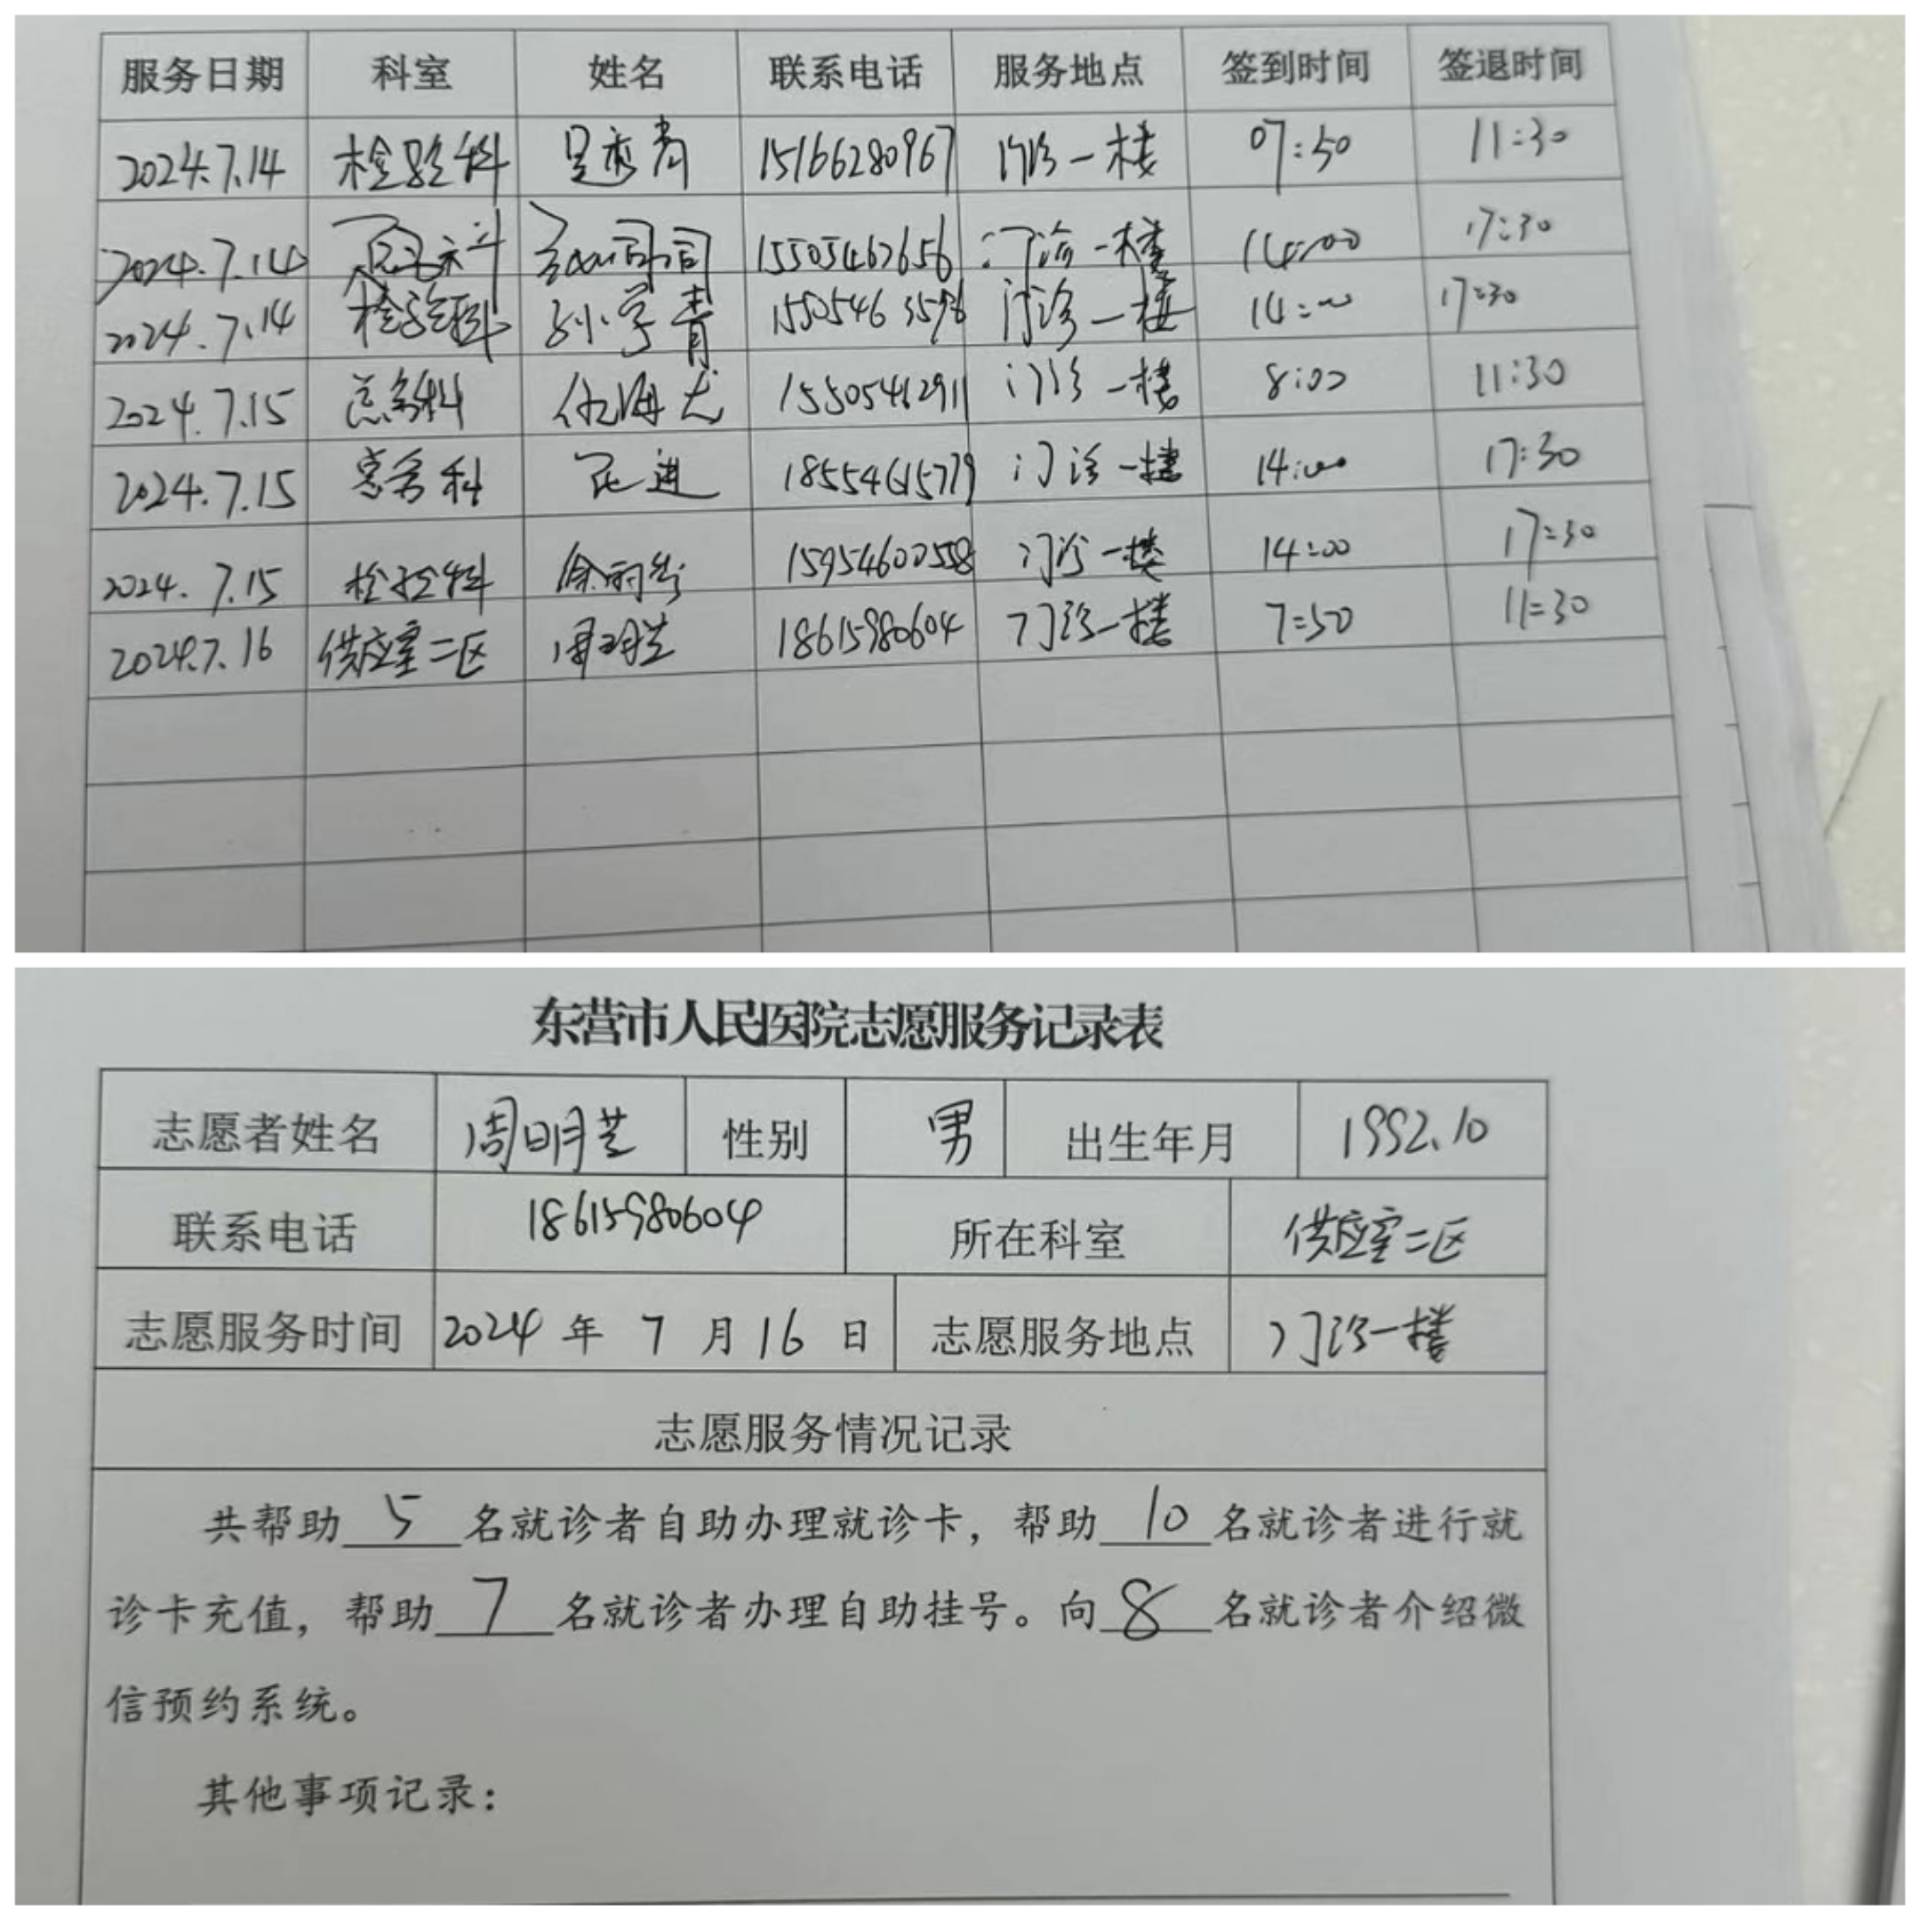 服务日期 科室 姓名 联系电话 服务地点 签到时间 签退时间
2024.7.14 检验科 15166280967 门诊一楼 07:50 11:30
2024.7.14 门诊一楼 14:00 17:30
2024.7.14 检验科 门诊一楼 14:00 17:30
2024.7.15 15505462911 门诊一楼 8:00 11:30
2024.7.15 科 进 18554615779 门诊一楼 14:00 17:30
2024.7.15 检验科 15954600558 门诊一楼 14:00 17:30
2024.7.16 供应室二区 周明芝 18615980604 门诊一楼 7:50 11:30
东营市人民医院志愿服务记录表
志愿者姓名 周明芝 性别 男 出生年月 1992.10
联系电话 18615980604 所在科室 供应室二区
志愿服务时间 2024 年 7 月 16 日 志愿服务地点 门诊一楼
志愿服务情况记录
共帮助 5 名就诊者自助办理就诊卡，帮助 10 名就诊者进行就
诊卡充值，帮助 7 名就诊者办理自助挂号。向 8 名就诊者介绍微
信预约系统。
其他事项记录：